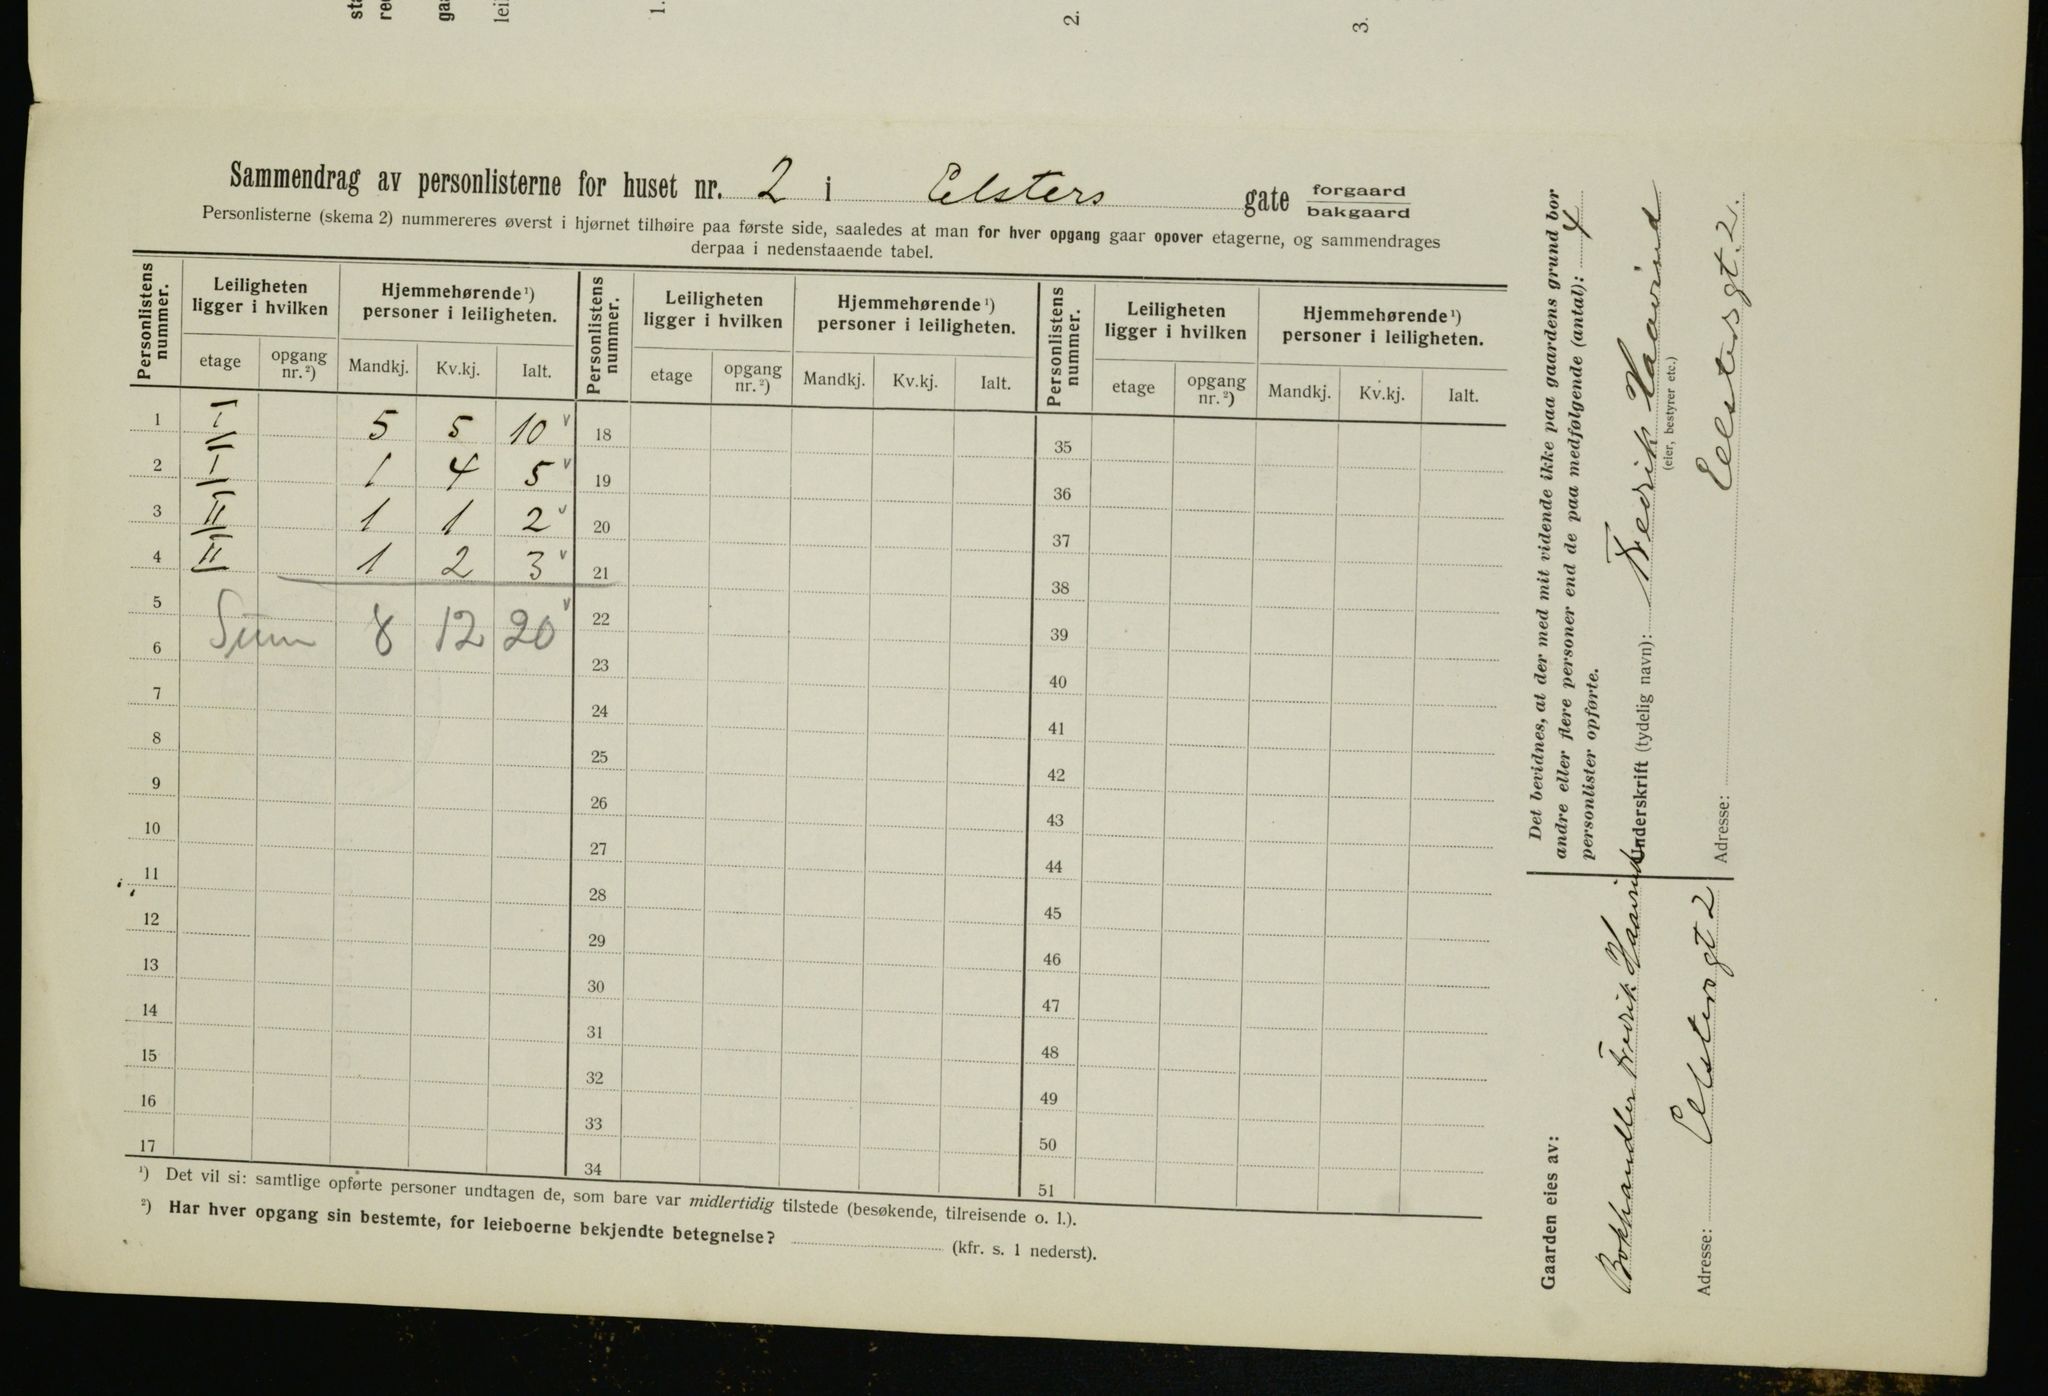 sta
re
ga
lei
1.
2.
3.
Sammendrag av personlisterne for huset nr. 2 i Elsters gate forgaard
bakgaard
Personlisterne (skema 2) nummereres øverst i hjørnet tilhøire paa første side, saaledes at man for hver opgang gaar opover etagerne, og sammendrages
derpaa i nedenstaaende tabel.
Personlistens nummer. Leiligheten ligger i hvilken Hjemmehørende¹) personer i leiligheten. Personlistens nummer. Leiligheten ligger i hvilken Hjemmehørende¹) personer i leiligheten. Personlistens nummer. Leiligheten ligger i hvilken Hjemmehørende¹) personer i leiligheten.
etage opgang nr.²) Mandkj. Kv.kj. Ialt. etage opgang nr.²) Mandkj. Kv.kj. Ialt. etage opgang nr.²) Mandkj. Kv.kj. Ialt.
1 I 5 5 10 v 18 35
2 I 1 4 5 v 19 36
3 II 1 1 2 v 20 37
4 II 1 2 3 v 21 38
5 v 22 39
6 Sum 8 12 20 23 40
7 24 41
8 25 42
9 26 43
10 27 44
11 28 45
12 29 46
13 30 47
14 31 48
15 32 49
16 33 50
17 34 51
¹) Det vil si: samtlige opførte personer undtagen de, som bare var midlertidig tilstede (besøkende, tilreisende o. l.).
²) Har hver opgang sin bestemte, for leieboerne bekjendte betegnelse? (kfr. s. 1 nederst).
Det bevidnes, at der med mit vidende ikke paa gaardens grund bor
andre eller flere personer end de paa medfølgende (antal): 4
personlister opførte.
Underskrift (tydelig navn): Fredrik Haavind
(eier, bestyrer etc.)
Adresse: Elstersgt. 2.
Gaarden eies av:
Bokhandler Fredrik Haavind
Adresse: Elstersgt 2